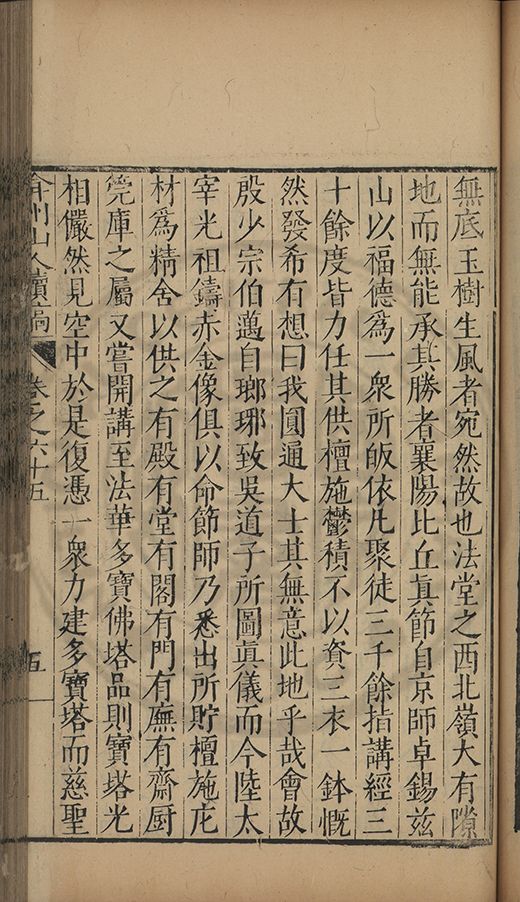 無底玉樹生風者宛然故也法堂之西北嶺大有隙
地而無能承其勝者襄陽比丘真節自京師卓錫兹
山以福德爲一衆所皈依凡聚徒三千餘指講經三
十餘度皆力任其供檀施鬱積不以資三衣一鉢慨
然發希有想曰我圓通大士其無意此地乎哉會故
殷少宗伯邁自瑯琊致吳道子所圖真儀而今陸太
宰光祖鑄赤金像俱以命節師乃悉出所貯檀施庀
材爲精舍以供之有殿有堂有閣有門有廡有齋厨
筦庫之屬又嘗開講至法華多寶佛塔品則寶塔光
相儼然見空中於是復憑一衆力建多寶塔而慈聖
弇州山人續稿 卷之六十五 五